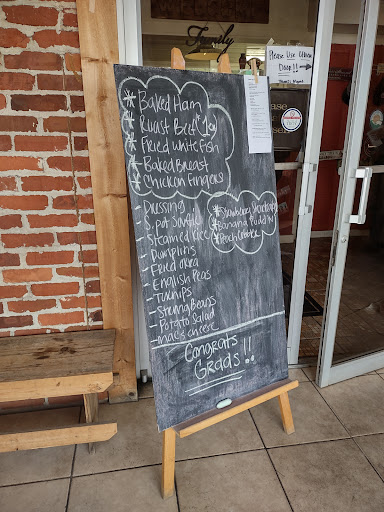 Family
Please Use Other
Door!!
* Baked Ham
* Roast Beef
* Fried Whitefish
* Baked Breast
* Chicken Fingers
- Dressing
- S. Pot Souffle
- Steamed Rice
- Dumplins
- Fried Okra
- English Peas
- Turnips
- String Beans
- Potato Salad
- Mac & cheese
* Strawberry Shortcake
* Banana Pudding
* Peach Cobbler
Congrats
Grads!!